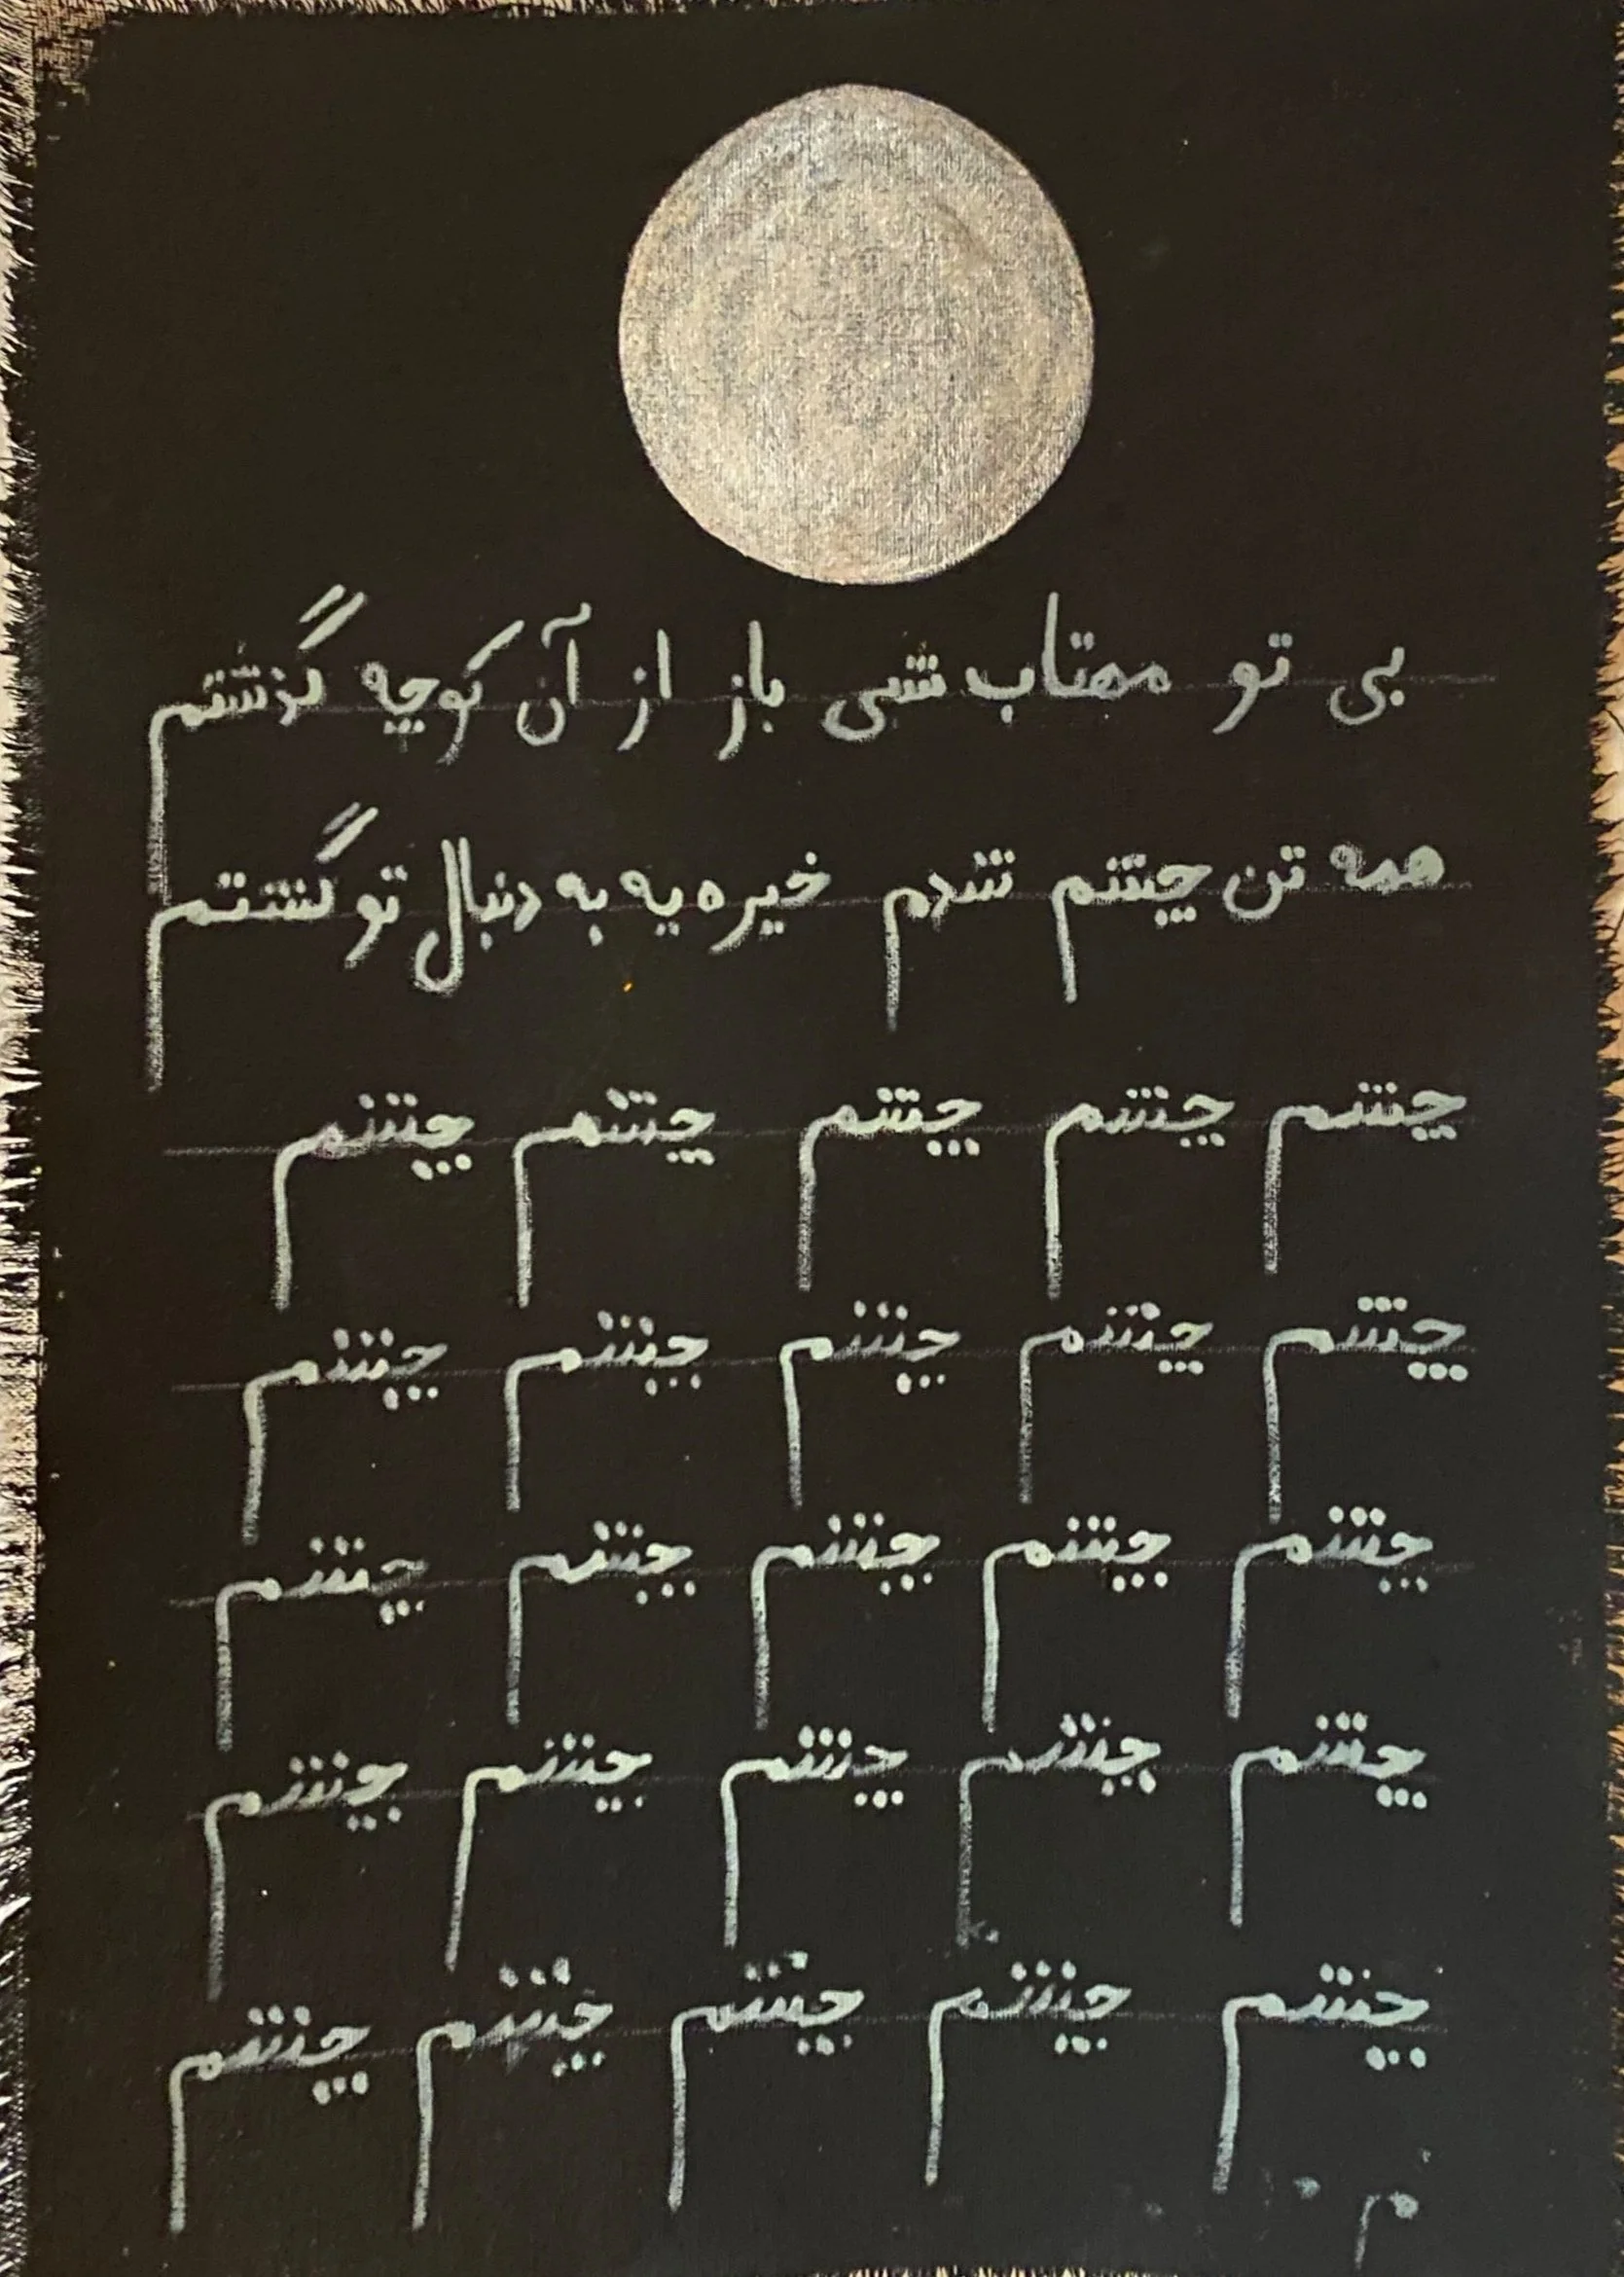 بی تو مهتاب شبی باز از آن کوچه گذشتم
همه تن چشم شدم خیره به به دنبال تو گشتم
چشم چشم چشم چشم چشم
چشم چشم چشم چشم چشم
چشم چشم چشم چشم چشم
چشم چشم چشم چشم چشم
چشم چشم چشم چشم چشم
م